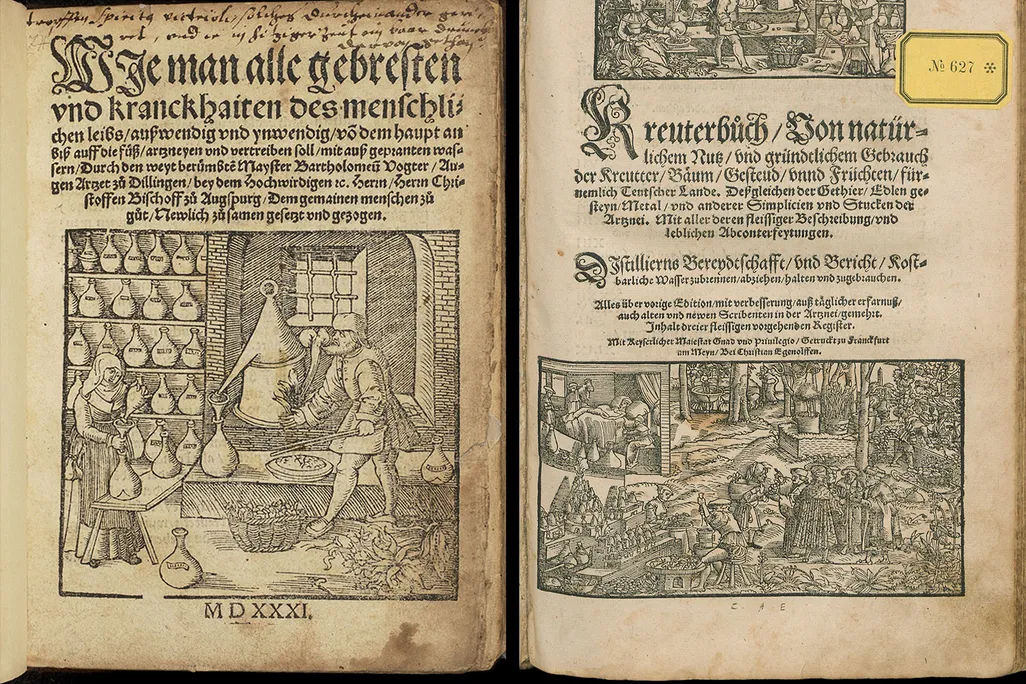 WJe man alle gebresten
vnd kranckhaiten des menschli⸗
chen leibs/außwendig vnd ynwendig/vō dem haupt an
biß auff die füß/artzneyen vnd vertreiben soll/mit auß gepranten was⸗
sern/Durch den weyt berümbtē Mayster Bartholomeū Vogter/Au⸗
gen Artzet zů Dillingen/bey dem Hochwirdigen ꝛc. Herrn/Herrn Chri⸗
stoffen Bischoff zů Augspurg/Dem gemainen menschen zů
gůt/Newlich zůsamen gesetzt vnd gezogen.
M D XXXI.
№ 627
Kreuterbůch/Von natür⸗
lichem Nutz/vnd gründtlichem Gebrauch
der Kreutter/Bäum/Gesteud/vnnd Früchten/für⸗
nemlich Teutscher Lande. Deßgleichen der Gethier/Edlen ge⸗
steyn/Metal/vnd anderer Simplicien vnd Stucken der
Artznei. Mit aller deren fleissiger Beschreibung/vnd
leblichen Abconterfeytungen.
DIstillierns Bereydtschafft/vnd Bericht/Kost⸗
barliche Wasser zubrennen/abziehen/halten vnd zugebrauchen.
Alles über vorige Edition/mit verbesserung/auß täglicher erfarnuß/
auch alten vnd newen Scribenten in der Artznei/gemehrt.
Inhalt dreier fleissigen vorgehenden Register.
Mit Keyserlicher Maiestat Gnad vnd Priuilegio/Getruckt zu Franckfurt
am Meyn/Bei Christian Egenolffen.
C A E